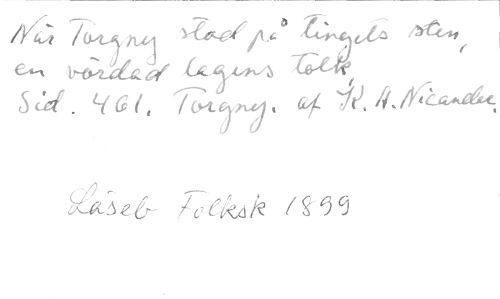 När Torgny stod på tingets sten,
en vördad lagens tolk,
Sid. 461. Torgny. af K. A. Nicander.
Läseb Folksk 1899